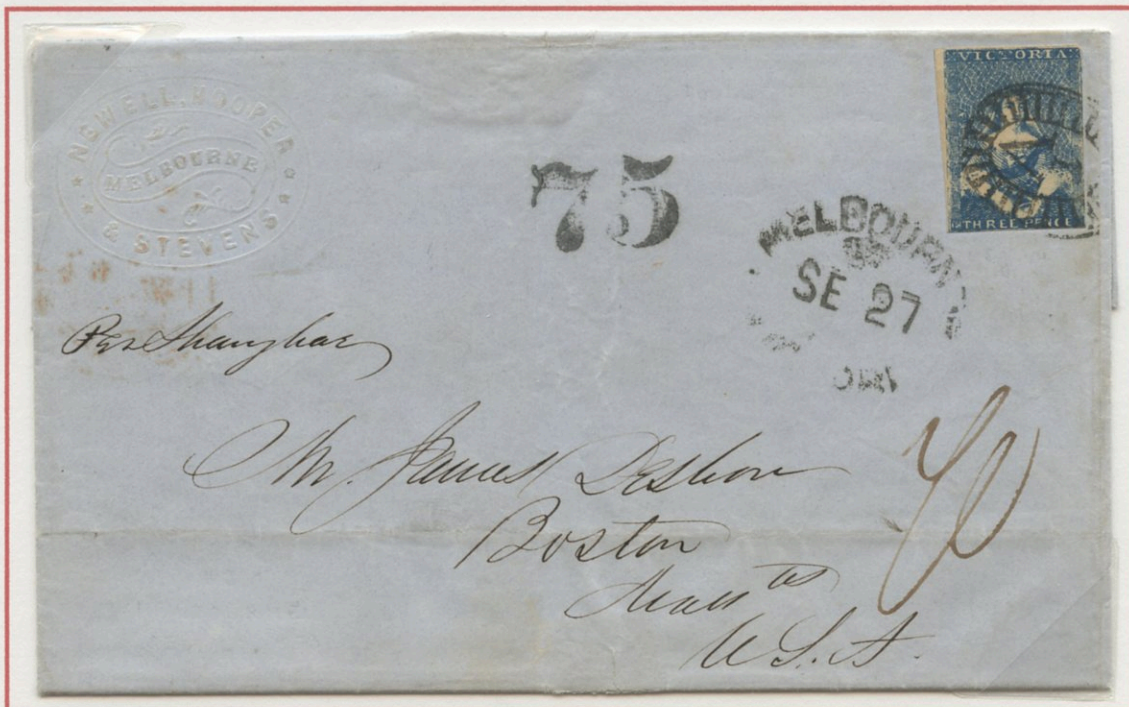 NEWELL, HOOPER
MELBOURNE
& STEVENS
75
VICTORIA
THREE PENCE
MELBOURN
SE 27
Per Shanghae
Mr. James
Boston
U.S.A.